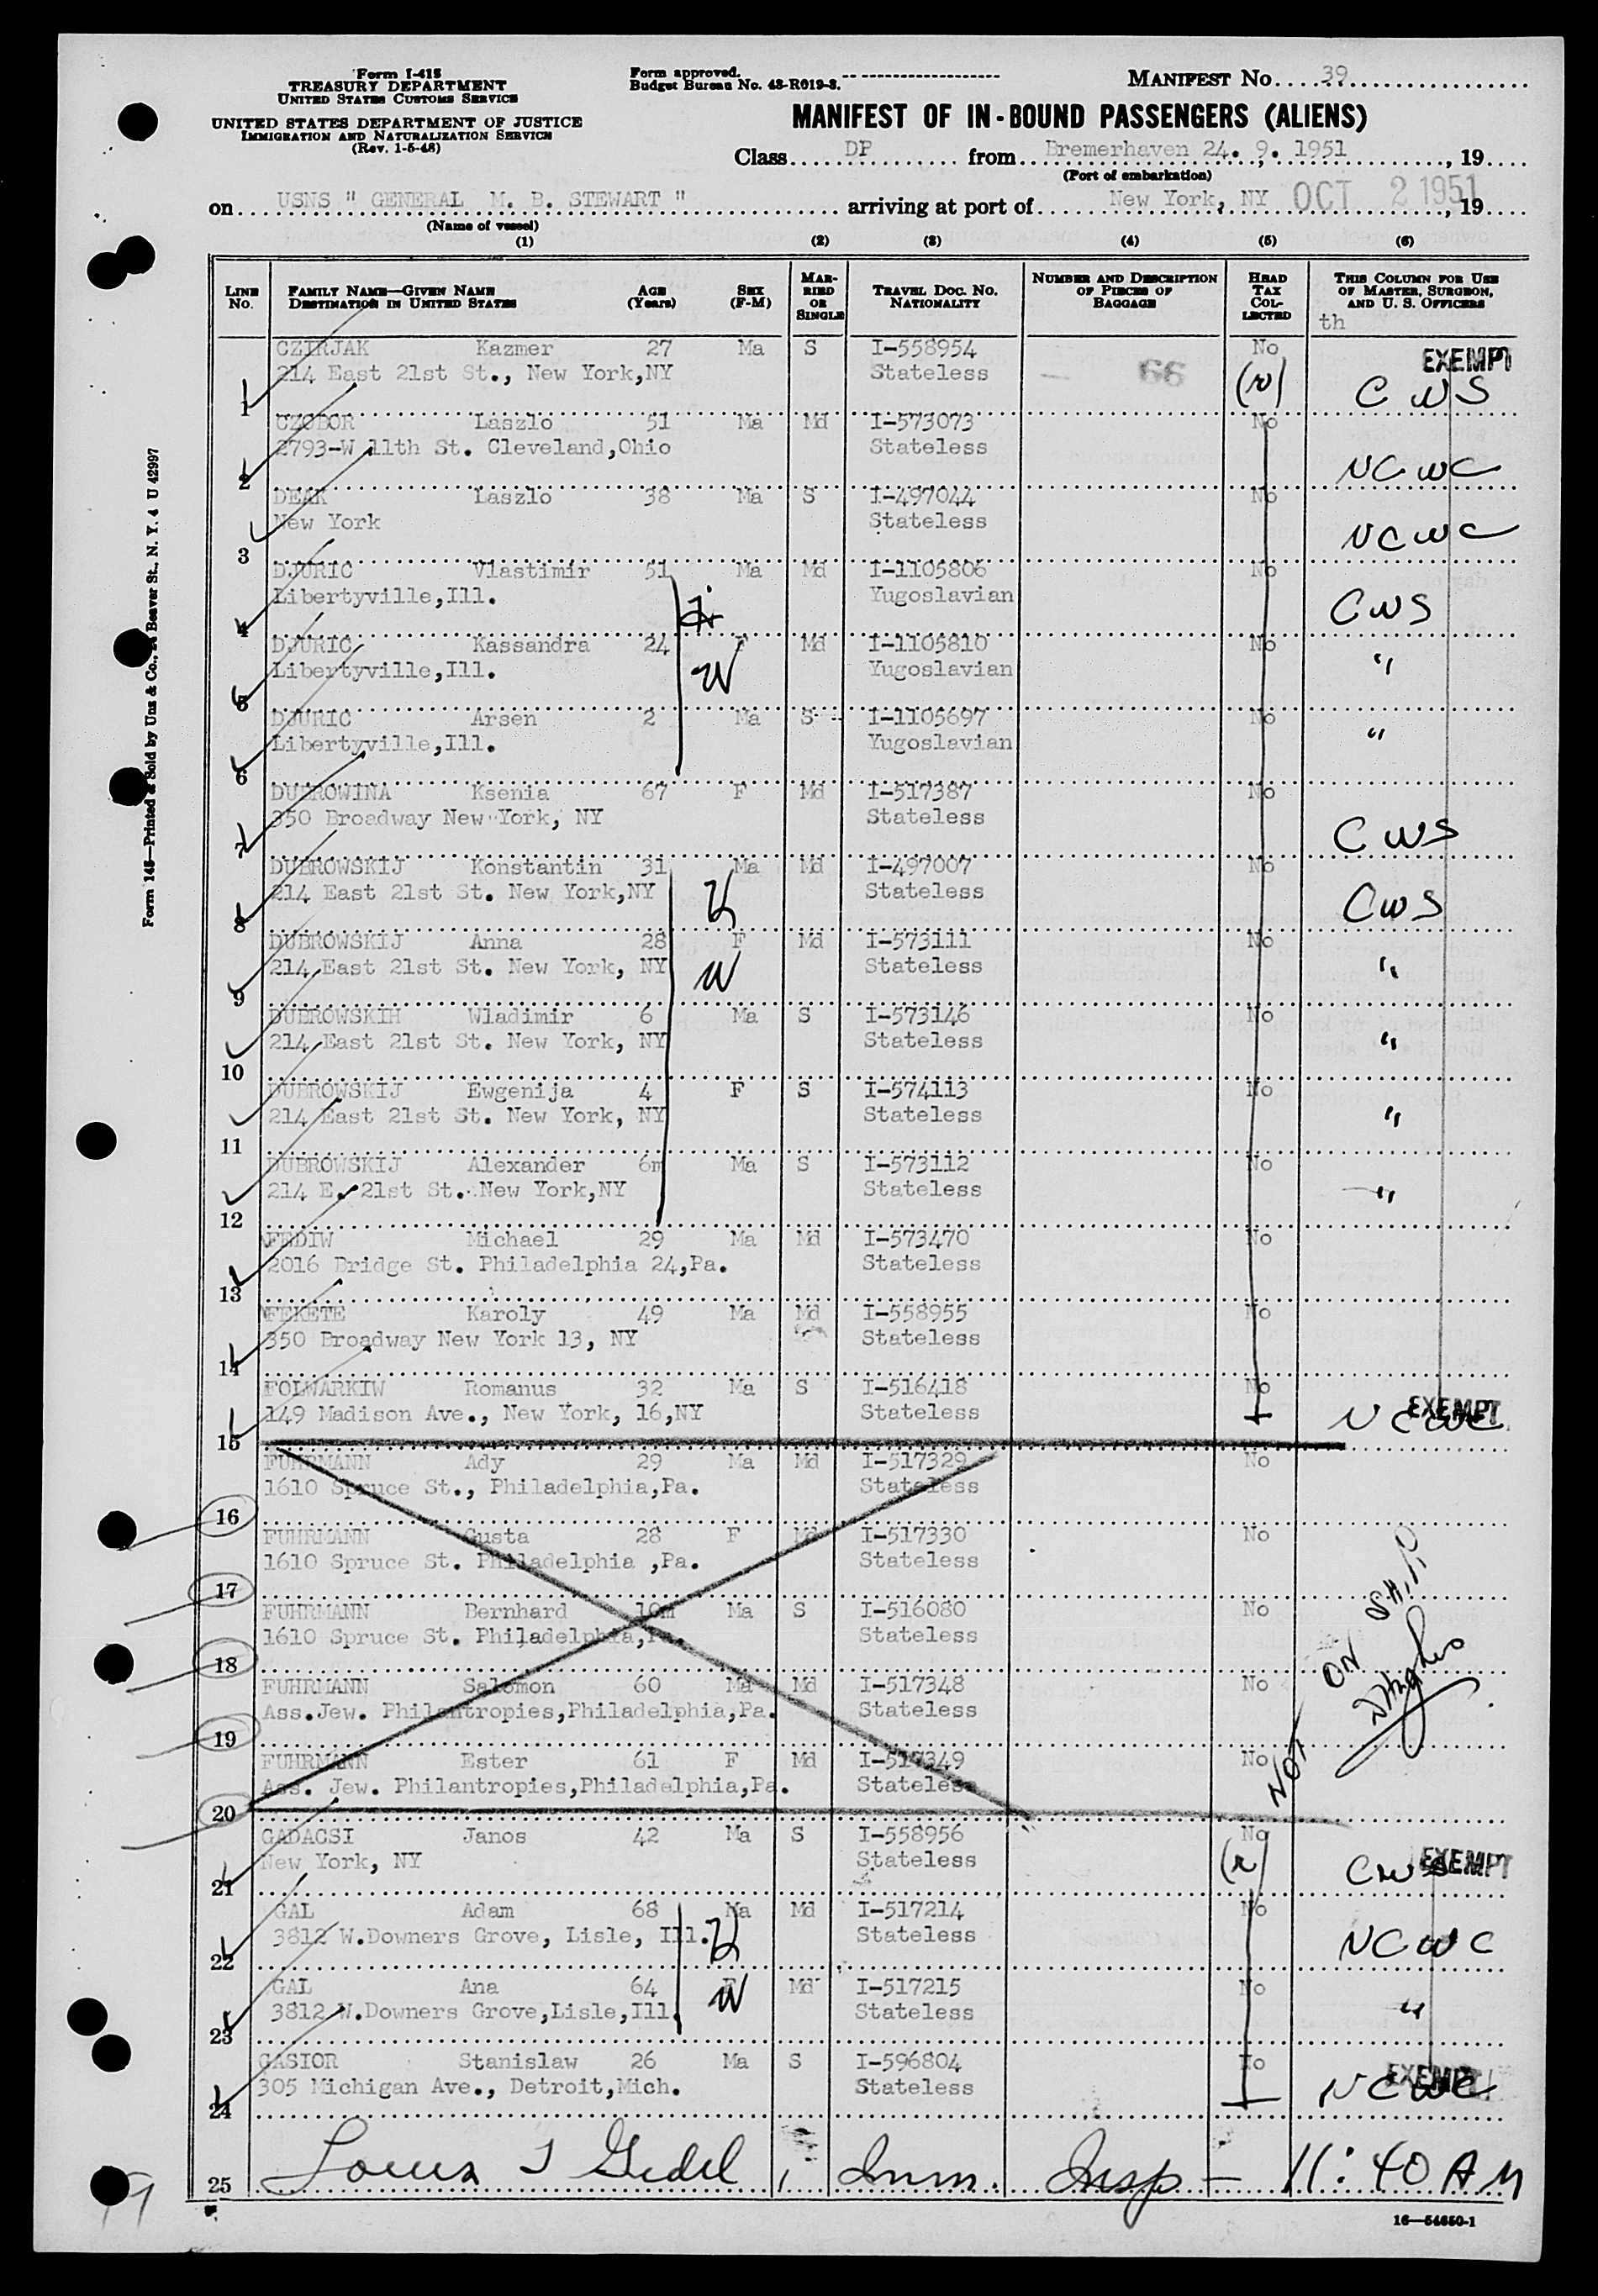 Form I-415
TREASURY DEPARTMENT
UNITED STATES CUSTOMS SERVICE
UNITED STATES DEPARTMENT OF JUSTICE
IMMIGRATION AND NATURALIZATION SERVICE
(Rev. 1-5-48)
Form approved.
Budget Bureau No. 43-R019-3.
MANIFEST No. 39
MANIFEST OF IN-BOUND PASSENGERS (ALIENS)
Class DP from Bremerhaven 24. 9. 1951, 19
(Port of embarkation)
on USNS " GENERAL M. B. STEWART " arriving at port of New York, NY OCT 2 1951, 19
(Name of vessel)
(1) (2) (3) (4) (5) (6)
LINE No. FAMILY NAME—GIVEN NAME DESTINATION IN UNITED STATES AGE (Years) SEX (F-M) MARRIED OR SINGLE TRAVEL DOC. NO. NATIONALITY NUMBER AND DESCRIPTION OF PIECES OF BAGGAGE HEAD TAX COLLECTED THIS COLUMN FOR USE OF MASTER, SURGEON, AND U. S. OFFICERS
th
CZIRJAK Kazmer 27 Ma S I-558954 No EXEMPT
214 East 21st St., New York,NY Stateless 66 (r) CWS
1
CZOBOR Laszlo 51 Ma Md I-573073 No
2793-W 11th St. Cleveland,Ohio Stateless NCWC
2
DEAK Laszlo 38 Ma S I-497044 No
New York Stateless NCWC
3
DJURIC Vlastimir 51 Ma Md I-1105806 No
Libertyville,Ill. Yugoslavian CWS
4
DJURIC Kassandra 24 F Md I-1105810 No
Libertyville,Ill. W Yugoslavian "
5
DJURIC Arsen 2 Ma S I-1105697 No
Libertyville,Ill. Yugoslavian "
6
DUBROWINA Ksenia 67 F Md I-517387 No
350 Broadway New York, NY Stateless CWS
7
DUBROWSKIJ Konstantin 31 Ma Md I-497007 No
214 East 21st St. New York,NY H Stateless CWS
8
DUBROWSKIJ Anna 28 F Md I-573111 No
214 East 21st St. New York, NY W Stateless "
9
DUBROWSKIH Wladimir 6 Ma S I-573146 No
214 East 21st St. New York, NY Stateless "
10
DUBROWSKIJ Ewgenija 4 F S I-574113 No
214 East 21st St. New York, NY Stateless "
11
DUBROWSKIJ Alexander 6m Ma S I-573112 No
214 E. 21st St. New York,NY Stateless "
12
FEDIW Michael 29 Ma Md I-573470 No
2016 Bridge St. Philadelphia 24,Pa. Stateless
13
FEKETE Karoly 49 Ma Md I-558955 No
350 Broadway New York 13, NY Stateless
14
FOLWARKIW Romanus 32 Ma S I-516418 No
149 Madison Ave., New York, 16,NY Stateless NCWC EXEMPT
15
FUHRMANN Ady 29 Ma Md I-517329 No
1610 Spruce St., Philadelphia,Pa. Stateless
16
FUHRMANN Gusta 28 F Md I-517330 No
1610 Spruce St. Philadelphia ,Pa. Stateless
17
FUHRMANN Bernhard 10m Ma S I-516080 No
1610 Spruce St. Philadelphia,Pa. Stateless
18
FUHRMANN Salomon 60 Ma Md I-517348 No
Ass.Jew. Philantropies,Philadelphia,Pa. Stateless
19
FUHRMANN Ester 61 F Md I-517349 No
Ass. Jew. Philantropies,Philadelphia,Pa. Stateless
20
NOT ON SHIP
GADACSI Janos 42 Ma S I-558956 No
New York, NY Stateless (r) CWS EXEMPT
21
GAL Adam 68 Ma Md I-517214 No
3812 W.Downers Grove, Lisle, Ill. H Stateless NCWC
22
GAL Ana 64 F Md I-517215 No
3812 W.Downers Grove,Lisle,Ill. W Stateless "
23
GASIOR Stanislaw 26 Ma S I-596804 No
305 Michigan Ave., Detroit,Mich. Stateless NCWC EXEMPT
24
25 Louis I Gedel, Imm. Insp - 11:40 AM
16—54650-1
Form 145—Printed & Sold by Unz & Co., 24 Beaver St., N. Y. 4 U 42997